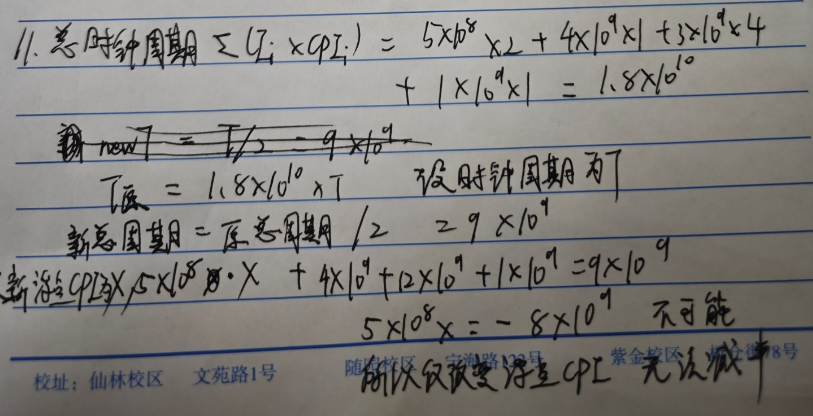 11. 总时钟周期 Σ(Iᵢ×CPIᵢ) = 5×10⁸×2 + 4×10⁹×1 + 3×10⁹×4
+ 1×10⁹×1 = 1.8×10¹⁰
新 newT = T/2 = 9×10⁹
T原 = 1.8×10¹⁰×T 设时钟周期为T
新总周期 = 原总周期/2 = 9×10⁹
新浮点CPI为X, 5×10⁸·X + 4×10⁹+12×10⁹+1×10⁹=9×10⁹
5×10⁸x = -8×10⁹ 不可能
所以仅改变浮点CPI 无法减半
校址：仙林校区 文苑路1号 随园校区 宁海路122号 紫金校区 78号